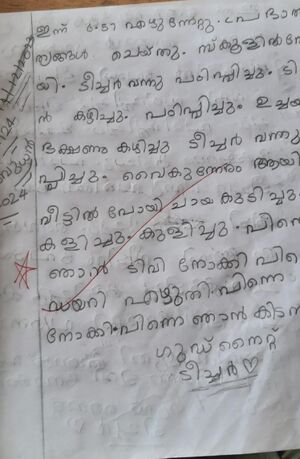 ഇന്ന് ഞാൻ എഴുന്നേറ്റു. പ്രഭാത
ത്യങ്ങൾ ചെയ്തു. സ്കൂളിൽ പോ
യി. ടീച്ചർ വന്നു പഠിപ്പിച്ചു. ടി
ൻ കഴിച്ചു. പഠിപ്പിച്ചു. ഉച്ചയ
ഭക്ഷണം കഴിച്ചു ടീച്ചർ വന്നു
പ്പിച്ചു. വൈകുന്നേരം ആയി
വീട്ടിൽ പോയി ചായ കുടിച്ചു.
കളിച്ചു. കുളിച്ചു. പിന്നെ
ഞാൻ ടിവി നോക്കി പിന്നെ
ഡയറി എഴുതി. പിന്നെ
നോക്കി. പിന്നെ ഞാൻ കിടന്ന
ഗുഡ് നൈറ്റ്
ടീച്ചർ